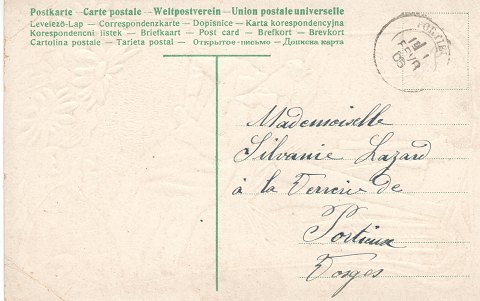 Postkarte - Carte postale - Weltpostverein - Union postale universelle
Levelező-Lap — Correspondenzkarte — Dopisnice — Karta korespondencyjna
Korespondencni listek — Briefkaart — Post card — Brefkort — Brevkort
Cartolina postale — Tarjeta postal — Открытое письмо — Дописна карта
PORTIEUX
19 1
FEVR
05
Mademoiselle
Silvanie Lazard
à la Verrerie de
Portieux
Vosges